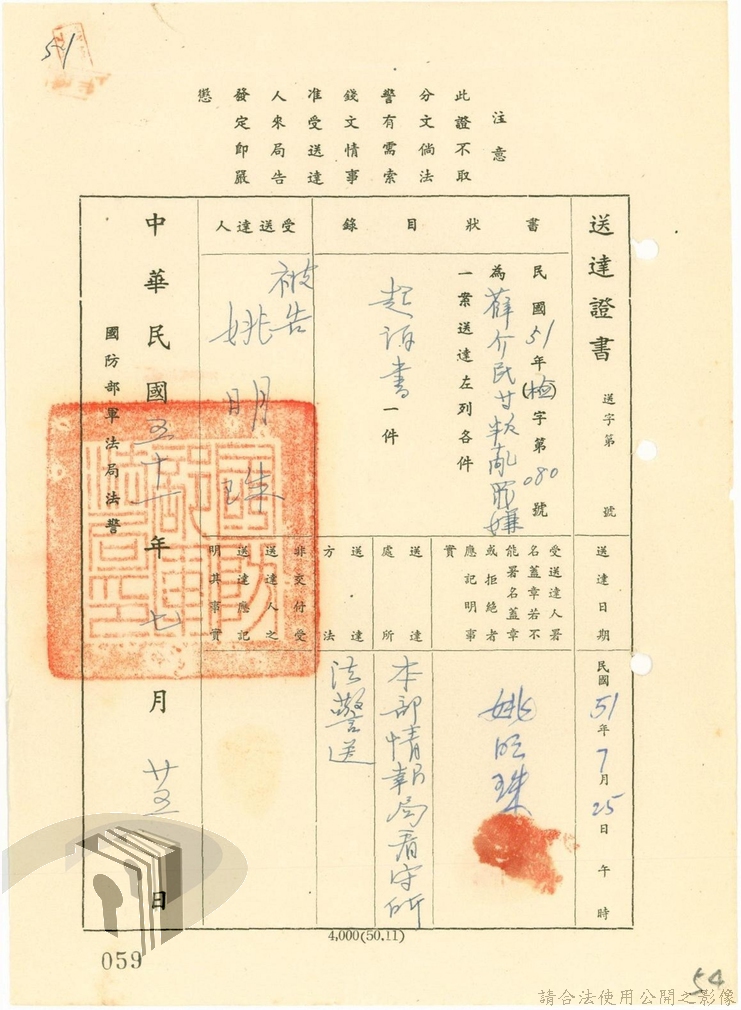 51
注意
此證不取
分文倘法
警有需索
錢文情事
准受送達
人來局告
發定即嚴
懲
送達證書 送字第 號
送達日期
民國51年7月25日午時
書狀目錄
民國51年(檢)字第080號
為薛介民廿叛亂罪嫌
一案送達左列各件
起訴書一件
受送達人署
名蓋章若不
能署名蓋章
或拒絕者
應記明事
實
姚明珠
送達處所
本部情報局看守所
送達方法
法警送
受送達人
被告
姚明珠
非交付受
送達人之
送達應記
明其事實
中華民國五十一年七月廿五日
國防部軍法局法警
4,000(50.11)
059
54
請合法使用公開之影像